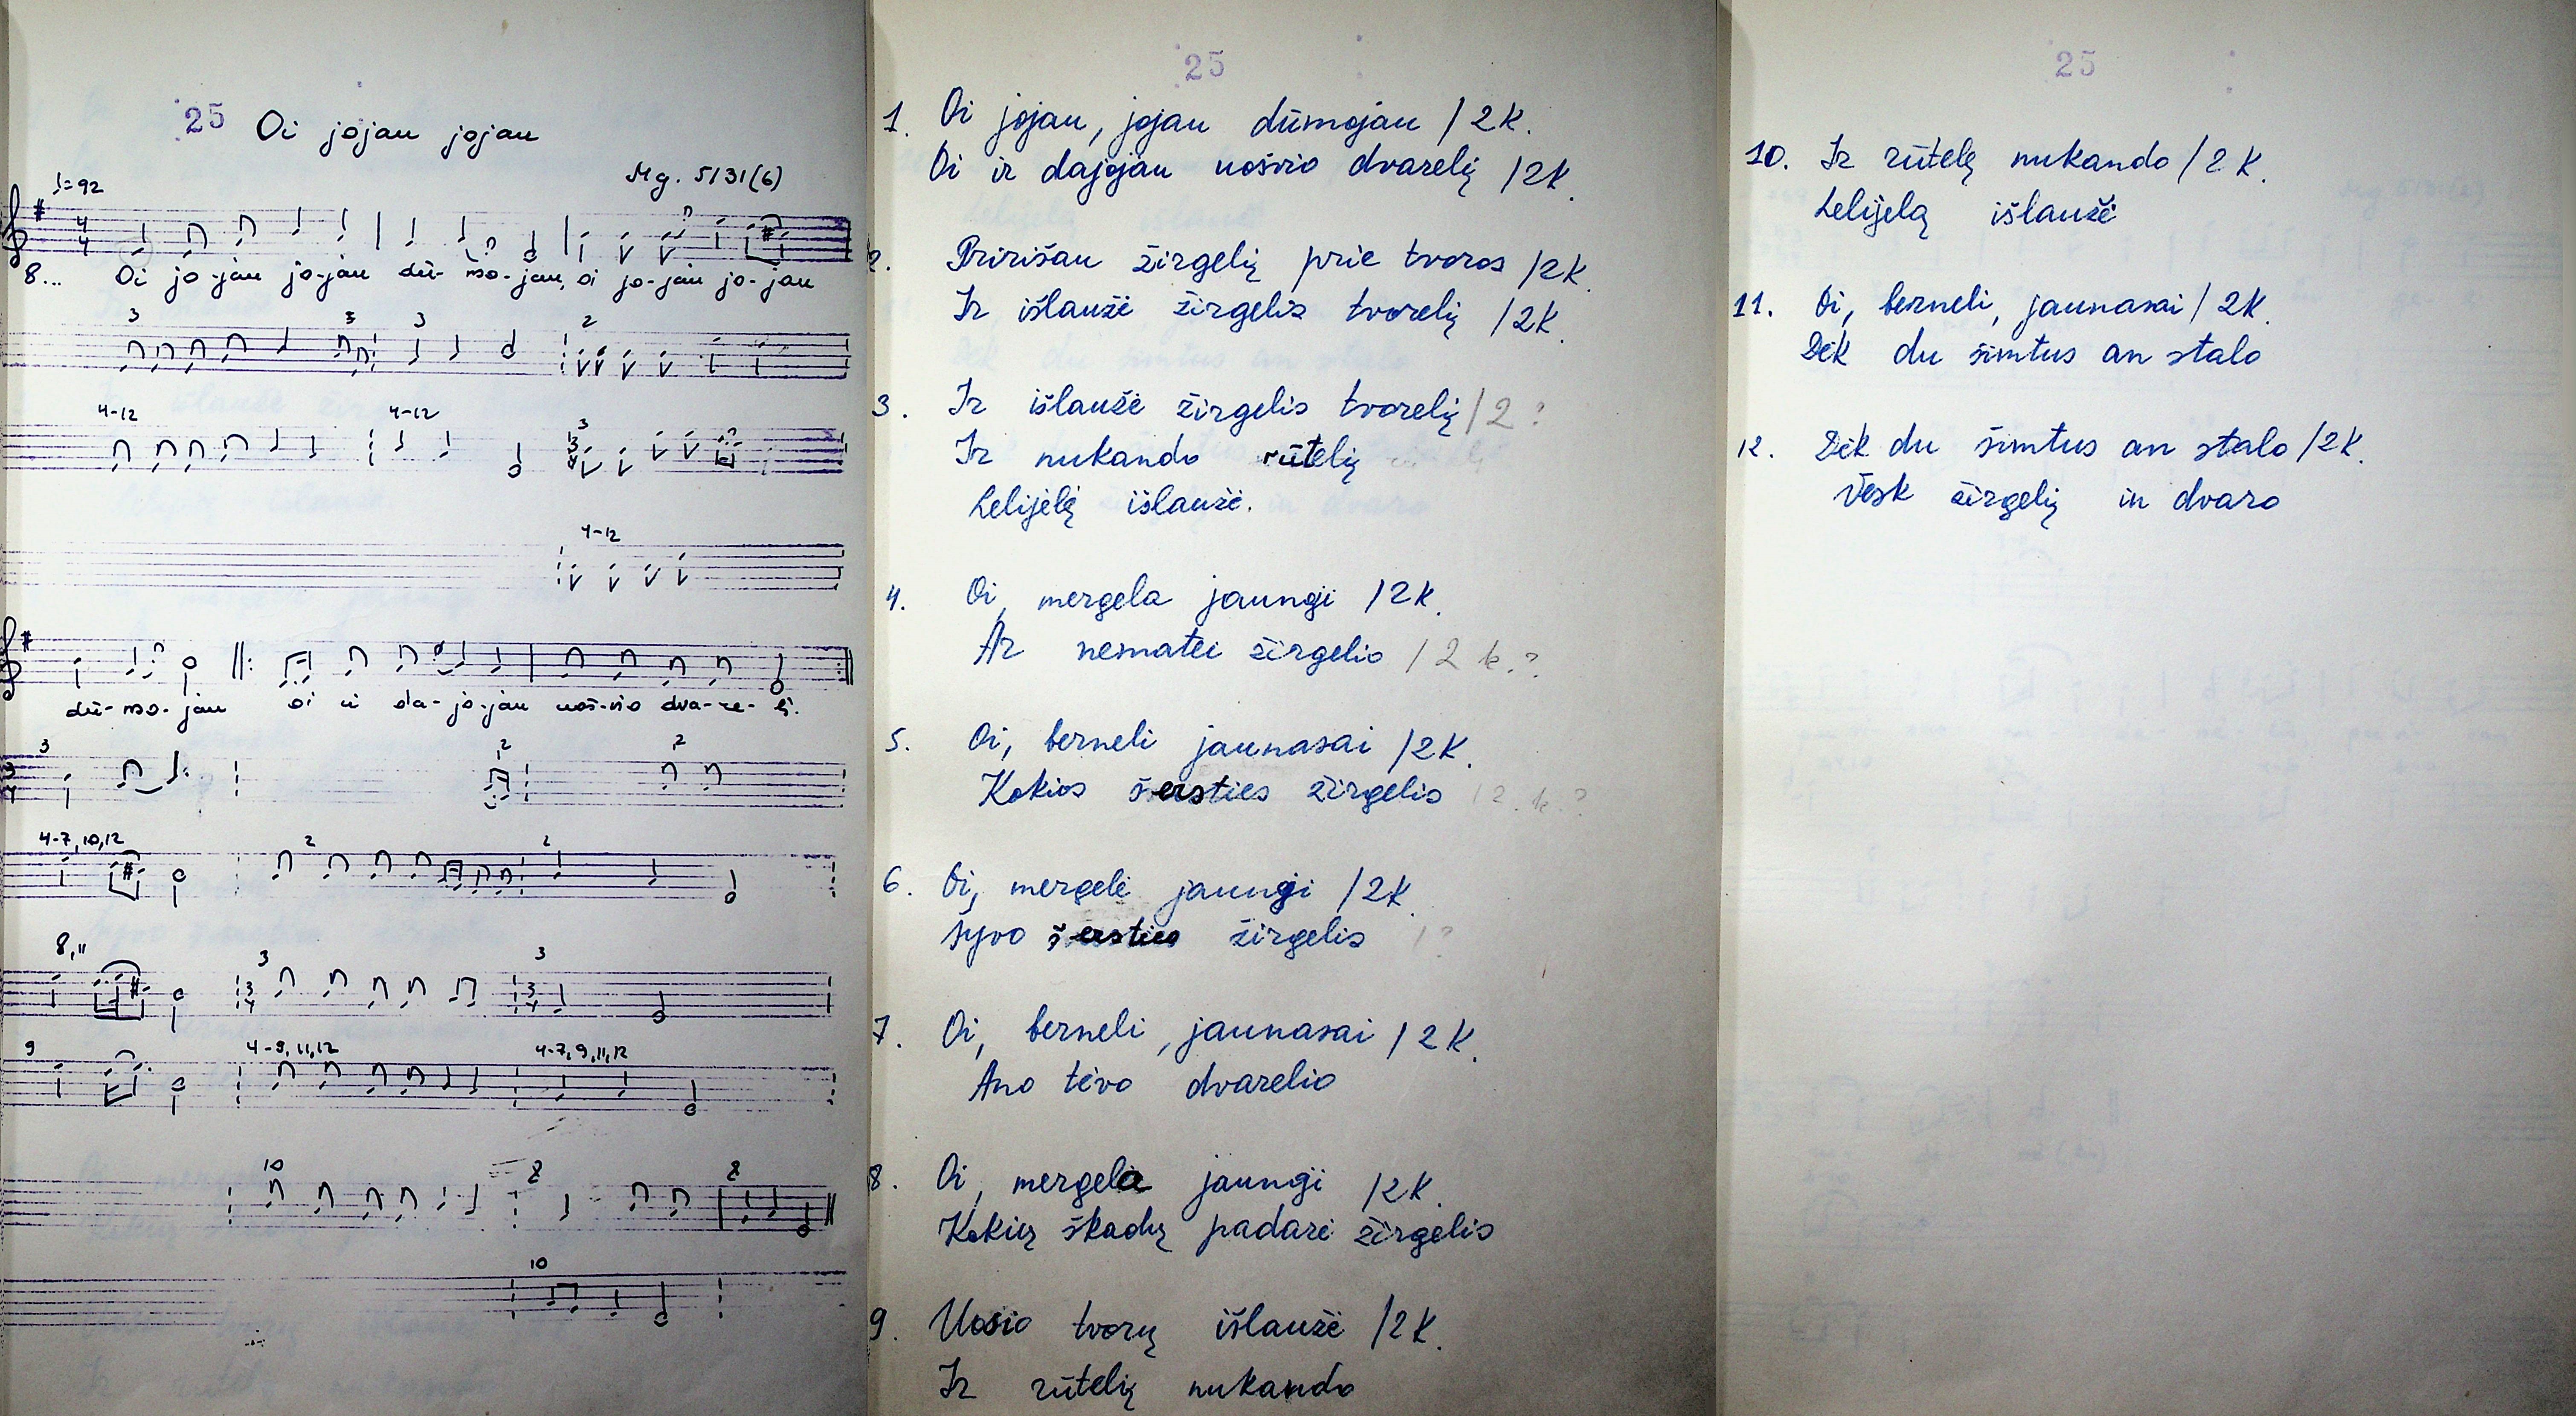 25 Oi jojau jojau
Mg. 5131(6)
♩=92
4/4
8... Oi jo-jau jo-jau dū-mo-jau, oi jo-jau jo-jau
3 3 3 2
4-12 4-12 3
4-12
dū-mo-jau oi ir da-jo-jau uoš-vio dva-re-lį.
3 2 2
4-7, 10, 12 2 2
8, 11 3 3
9 4-9, 11, 12 4-7, 9, 11, 12
10 8 8
10
25
1. Oi jojau, jojau dūmojau /2k.
Oi ir dajojau uošvio dvarelį /2k.
2. Pririšau žirgelį prie tvoros /2k.
Ir išlaužė žirgelis tvorelį /2k.
3. Ir išlaužė žirgelis tvorelį /2 ?
Ir nukando rūtelį
Lelijėlę išlaužė.
4. Oi, mergela jaungi /2k.
Ar nematei žirgelio /2 k.?
5. Oi, berneli jaunasai /2k.
Kokios šersties žirgelio /2.k.?
6. Oi, mergele jaungi /2k.
Syvo šersties žirgelis /?
7. Oi, berneli, jaunasai /2k.
Ano tėvo dvarelio
8. Oi, mergela jaungi /2k.
Kokių škadų padarė žirgelis
9. Uosio tvorų išlaužė /2k.
Ir rūtelių nukando
25
10. Ir rūtelę nukando /2k.
Lelijelą išlaužė
11. Oi, berneli, jaunasai /2k.
Dėk du šimtus an stalo
12. Dėk du šimtus an stalo /2k.
Vesk žirgelį in dvaro